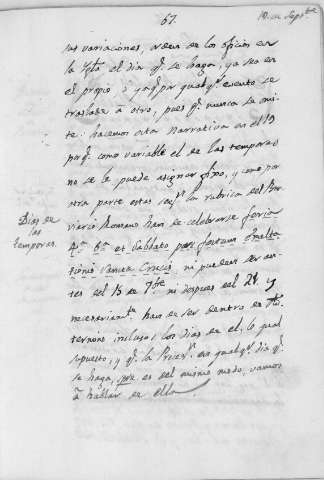 67.
19. de Sept.bre
sus variaciones, orden de los oficios en
la Ygla. el dia q.e se haga, ya sea en
el propio, ò ya q.e por qualq.r evento se
traslade à otro, pues q.e nunca se omi-
te: hacemos esta narrativa en el 19
porq.e como variable el de las temporas
no se le puede asignar fixo, y como por
otra parte estas seg.n la rubrica del Bre-
viario Romano han de celebrarse feria
4.a 6.a et Sabbato post festum Exalta-
Dias de
las
temporas.
tionis Sanctæ Crucis ni pueden ser an-
tes del 15 de 7bre ni despues del 21 y
necesariam.te han de ser dentro de
ternions inclusos los dias de el, lo qual
supuesto, y q.e la Proces.n en qualq.r dia q.e
se haga, es del mismo modo, vamos
à hablar de ella.